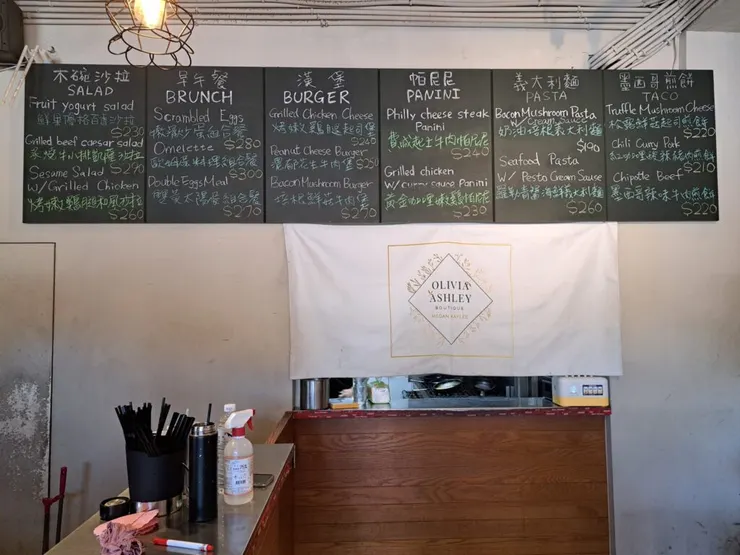 木碗沙拉
SALAD
Fruit yogurt salad
鮮果優格百香沙拉
$230
Grilled beef caesar salad
炙燒牛小排凱薩沙拉
$290
Sesame Salad
W/Grilled Chicken
$260
早午餐
BRUNCH
Scrambled Eggs
$280
Omelette
$300
Double Eggs Meal
雙炙太陽蛋組合餐
$270
漢堡
BURGER
Grilled Chicken Cheese
烤嫩雞腿起司堡
$240
Peanut Cheese Burger
濃郁花生牛肉堡
$250
Bacon Mushroom Burger
培根鮮菇牛肉堡
$270
帕尼尼
PANINI
Philly cheese steak
Panini
費城起士牛肉帕尼尼
$240
Grilled chicken
w/curry sauce Panini
黃金咖哩嫩雞帕尼尼
$230
義大利麵
PASTA
Bacon Mushroom Pasta
w/ Cream Sauce
奶油培根義大利麵
$190
Seafood Pasta
W/ Pesto Cream Sause
羅勒青醬海鮮義大利麵
$260
墨西哥煎餅
TACO
Truffle Mushroom Cheese
松露鮮菇起司煎餅
$220
Chili Curry Pork
$210
Chipotle Beef
墨西哥辣味牛肉煎餅
$220
OLIVIA
ASHLEY
BOUTIQUE